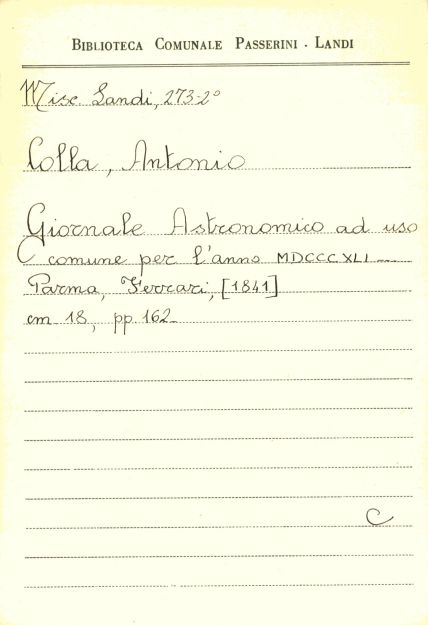 BIBLIOTECA COMUNALE PASSERINI - LANDI
Misc. Landi, 273-2º
Colla, Antonio
Giornale Astronomico ad uso
comune per l'anno MDCCCXLI
Parma, Ferrari, [1841]
cm 18, pp. 162
C